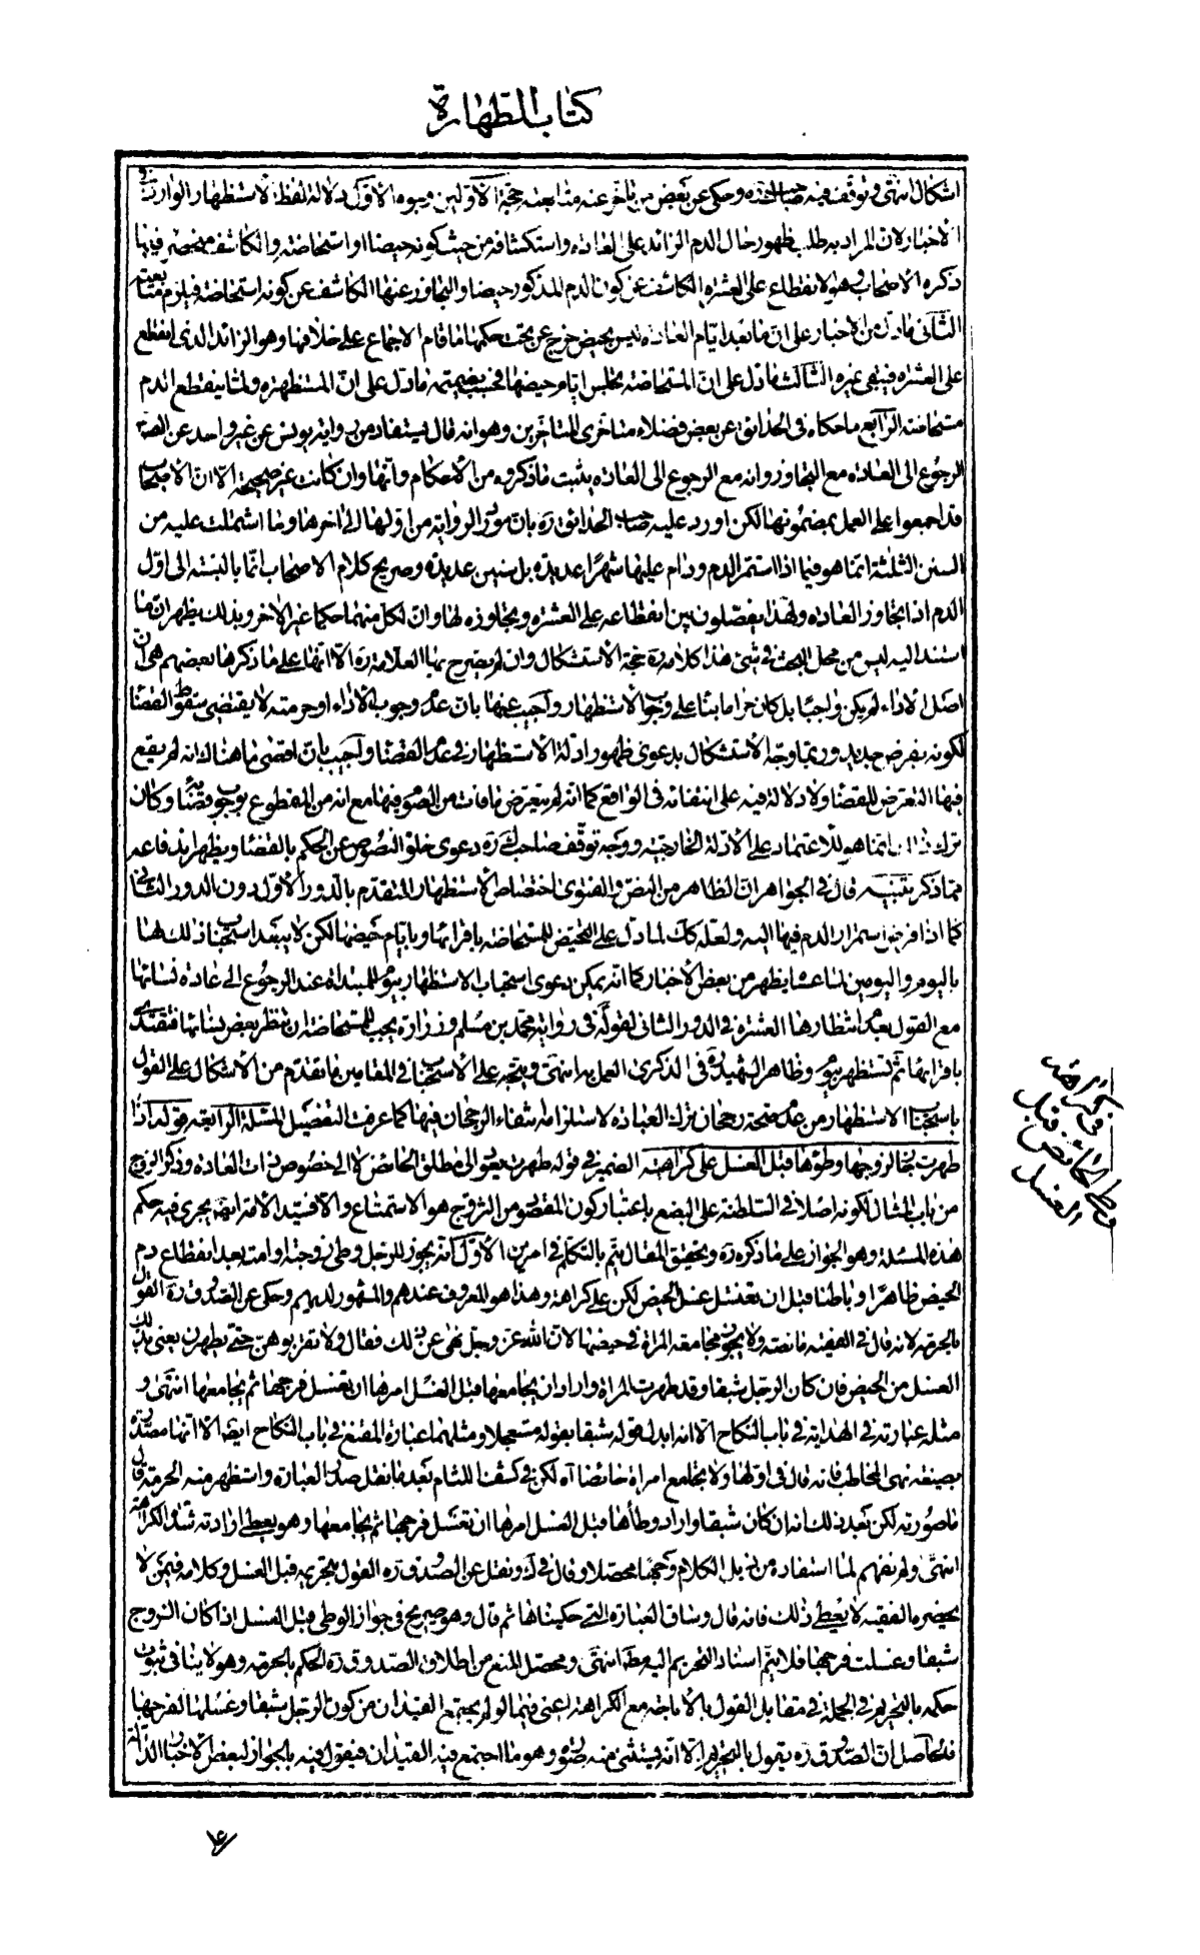 كتاب الطهارة
اشكال انتهى وتوقف فيه صاحب ك ره وحكى عن بعض من تأخر عنه متابعته حجة الأولين وجوه الأول دلالة لفظ الاستظهار الوارد في
الأخبار لان المراد به طلب ظهور حال الدم الزائد على العادة واستكشافه من حيث كونه حيضا او استحاضة والكاشف منحصر فيما
ذكره الأصحاب وهو الانقطاع على العشرة الكاشف عن كون الدم المذكور حيضا والتجاوز عنها الكاشف عن كونه استحاضة فيلزم متابعته
الثاني ما دل من الأخبار على ان ما بعد ايام العادة ليس بحيض خرج عن تحت حكمها ما قام الاجماع على خلافها وهو الزائد الذي انقطع
على العشرة فيبقى غيره الثالث ما دل على ان المستحاضة تجلس ايام حيضها فحسب بضميمة ما دل على ان المستظهرة ولما ينقطع الدم
مستحاضة الرابع ما حكاه في الحدائق عن بعض فضلاء متأخري المتأخرين وهو انه قال يستفاد من رواية يونس عن غير واحد عن الص
الرجوع الى العادة مع التجاوز وانه مع الرجوع الى العادة يثبت ما ذكروه من الأحكام وانها وان كانت غير صحيحة الا ان الأصحاب
قد اجمعوا على العمل بمضمونها لكن اورد عليه صاحب الحدائق ره بان مورد الرواية من اولها الى اخرها وما اشتملت عليه من
السنن الثلثة انما هو فيما اذا استمر الدم ودام عليها شهرا عديدة بل سنين عديدة وصريح كلام الأصحاب انما بالنسبة الى اول
الدم اذا تجاوز العادة ولهذا يفصلون بين انقطاعه على العشرة وتجاوزه لها وان لكل منهما حكما غير الاخر وبذلك يظهر ان ما
استند اليه ليس من محل البحث في شئ هذا كلامه ره حجة الاستشكال وان لم يصرح بها العلامة ره الا انها على ما ذكرها بعضهم هي ان
اصل الأداء لم يكن واجبا بل كان حراما بناء على وجوب الاستظهار واجيب عنها بان عدم وجوب الأداء او حرمته لا يقتضي سقوط القضاء
لكونه بفرض جديد وربما وجه الاستشكال بدعوى ظهور ادلة الاستظهار في عدم القضاء واجيب بان اقصى ما هناك انه لم يقع
فيها التعرض للقضاء ولا دلالة فيه على انتفائه في الواقع كما انه لم يتعرض ما فات من الصوم فيها مع انه من المقطوع به وجوب قضائه وكان
ترك ذلك انما هو للاعتماد على الأدلة الخارجية ووجه توقف صاحب ك ره دعوى خلو النصوص عن الحكم بالقضاء ويظهر اندفاعه
مما ذكر تنبيه قال في الجواهر ان الظاهر من النص والفتوى اختصاص الاستظهار المتقدم بالدور الأول دون الدور الثاني
كما اذا فرض استمرار الدم فيها اليه ولعله كك لما دل على التحيض للمستحاضة باقرائها وبايام حيضها لكن لا يبعد استحباب ذلك هنا
باليوم واليومين لما عساه يظهر من بعض الأخبار كما انه يمكن دعوى استحباب الاستظهار بيوم للمبتدأة عند الرجوع الى عادة نسائها
مع القول بعدم انتظارها العشرة في الدور الثاني لقوله في رواية محمد بن مسلم وزرارة يجب للمستحاضة ان تنظر بعض نسائها فتقتدي
باقرائها ثم تستظهر بيوم وظاهر الشهيد ره في الذكرى العمل به انتهى ويتجه على الاستحباب في المقامين ما تقدم من الاشكال على القول
باستحباب الاستظهار من عدم صحة رجحان ترك العبادة لاستلزامه انتفاء الرجحان فيها كما عرفت التفصيل المسئلة الرابعة قوله اذا
طهرت جاز لزوجها وطؤها قبل الغسل على كراهية الضمير في قوله طهرت يعود الى مطلق الحائض لا الى خصوص ذات العادة وذكر الزوج
من باب المثال لكونه اصلا في السلطنة على البضع باعتبار كون المقصود من التزوج هو الاستمتاع والا فسيد الأمة ايضا يجري فيه حكم
هذه المسئلة وهو الجواز على ما ذكره ره وتحقيق المقال يتم بالتكلم في امرين الأول انه يجوز للرجل وطي زوجته او امته بعد انقطاع دم
الحيض ظاهرا وباطنا قبل ان تغتسل غسل الحيض لكن على كراهة وهذا هو المعروف عندهم والمشهور لديهم وحكى عن الصدوق ره القول
بالحرمة لانه قال في الفقيه ما نصه ولا يجوز مجامعة المرأة في حيضها لان الله عز وجل نهى عن ذلك فقال ولا تقربوهن حتى يطهرن يعني بذلك
الغسل من الحيض فان كان الرجل شبقا وقد طهرت المرأة واراد ان يجامعها قبل الغسل امرها ان تغسل فرجها ثم يجامعها انتهى و
مثله عبارته في الهداية في باب النكاح الا انه ابدل قوله شبقا بقوله مستعجلا ومثلهما عبارة المقنع في باب النكاح ايضا الا انها مصدرة
بصيغة نهي المخاطب فانه قال في اولها ولا تجامع امرأة حائضا آه لكن في كشف اللثام بعد ما نقل صدر العبارة واستظهر منه الحرمة قال
ما صورته لكن بعد ذلك انه ان كان شبقا واراد وطأها قبل الغسل امرها ان تغسل فرجها ثم يجامعها وهو يعطي ارادته شدة الكراهة
انتهى ولم نفهم لما استفاده من ذيل الكلام وجها محصلا وقال في ك ونقل عن الصدوق ره القول بتحريمه قبل الغسل وكلامه فيمن لا
يحضره الفقيه لا يعطي ذلك فانه قال وساق العبارة التي حكيناها ثم قال وهو صريح في جواز الوطي قبل الغسل اذا كان الزوج
شبقا وغسلت فرجها فلا يتم اسناد التحريم اليه مطلقا انتهى ومحصل المنع من اطلاق الصدوق ره الحكم بالحرمة وهو لا ينافي ثبوت
حكمه بالتحريم في الجملة في مقابل القول بالأباحة مع الكراهة اعني فيما لو لم يجتمع القيدان من كون الرجل شبقا وغسلها لفرجها
فالحاصل ان الصدوق ره يقول بالتحريم الا انه يستثني منه صورة وهو ما اجتمع فيه القيدان فيقول فيه بالجواز لبعض الأخبار الدالة
في كراهة
وطي الحائض قبل
الغسل